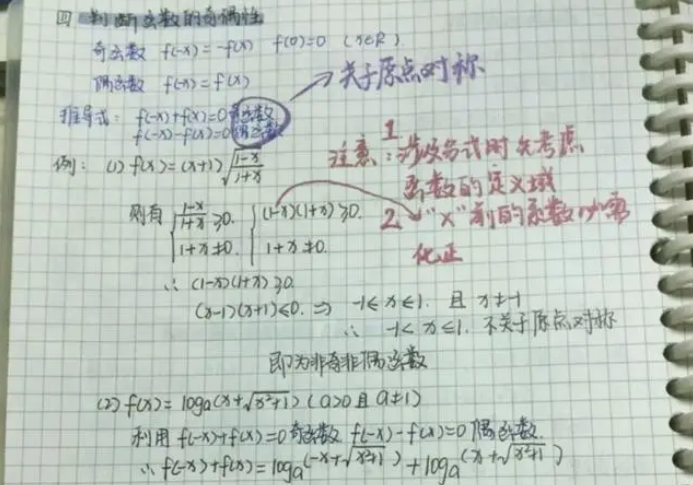 四 判断函数的奇偶性
奇函数 f(-x)=-f(x) f(0)=0 (x∈R)
偶函数 f(-x)=f(x)
关于原点对称
推导式: f(-x)+f(x)=0 奇函数
f(-x)-f(x)=0 偶函数
例: (1) f(x)=(x+1)√((1-x)/(1+x))
注意: 1 涉及分式时先考虑
函数的定义域
2 "x"前的系数必需
化正
则有 { (1-x)/(1+x)≥0. { (1-x)(1+x)≥0.
1+x≠0. 1+x≠0.
∴ (1-x)(1+x)≥0.
(x-1)(x+1)≤0. ⇒ -1≤x≤1. 且 x≠-1
∴ -1<x≤1. 不关于原点对称
即为非奇非偶函数
(2) f(x)=loga(x+√(x²+1)) (a>0且a≠1)
利用 f(-x)+f(x)=0 奇函数 f(-x)-f(x)=0 偶函数.
∴ f(-x)+f(x)=loga(-x+√(x²+1))+loga(x+√(x²+1))